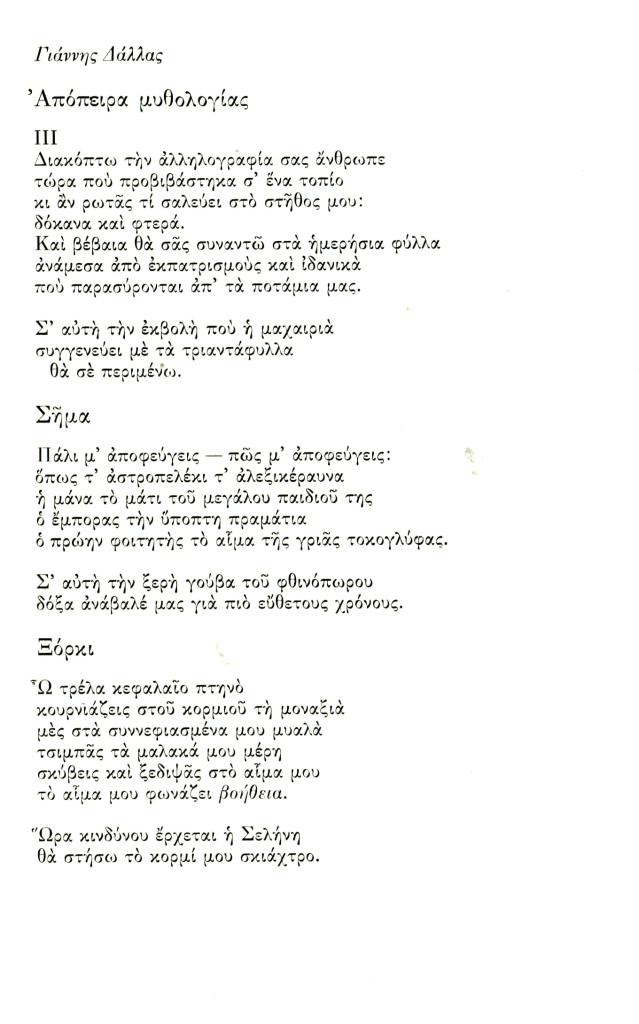 Γιάννης Δάλλας
Ἀπόπειρα μυθολογίας
III
Διακόπτω τὴν ἀλληλογραφία σας ἄνθρωπε
τώρα ποὺ προβιβάστηκα σ’ ἕνα τοπίο
κι ἂν ρωτᾶς τί σαλεύει στὸ στῆθος μου:
δόκανα καὶ φτερά.
Καὶ βέβαια θὰ σᾶς συναντῶ στὰ ἡμερήσια φύλλα
ἀνάμεσα ἀπὸ ἐκπατρισμοὺς καὶ ἰδανικὰ
ποὺ παρασύρονται ἀπ’ τὰ ποτάμια μας.
Σ’ αὐτὴ τὴν ἐκβολὴ ποὺ ἡ μαχαιριὰ
συγγενεύει μὲ τὰ τριαντάφυλλα
θὰ σὲ περιμένω.
Σῆμα
Πάλι μ’ ἀποφεύγεις — πῶς μ’ ἀποφεύγεις:
ὅπως τ’ ἀστροπελέκι τ’ ἀλεξικέραυνα
ἡ μάνα τὸ μάτι τοῦ μεγάλου παιδιοῦ της
ὁ ἔμπορας τὴν ὕποπτη πραμάτια
ὁ πρώην φοιτητὴς τὸ αἷμα τῆς γριᾶς τοκογλύφας.
Σ’ αὐτὴ τὴν ξερὴ γούβα τοῦ φθινόπωρου
δόξα ἀνάβαλέ μας γιὰ πιὸ εὔθετους χρόνους.
Ξόρκι
Ὦ τρέλα κεφαλαῖο πτηνὸ
κουρνιάζεις στοῦ κορμιοῦ τὴ μοναξιὰ
μὲς στὰ συννεφιασμένα μου μυαλὰ
τσιμπᾶς τὰ μαλακά μου μέρη
σκύβεις καὶ ξεδιψᾶς στὸ αἷμα μου
τὸ αἷμα μου φωνάζει βοήθεια.
Ὥρα κινδύνου ἔρχεται ἡ Σελήνη
θὰ στήσω τὸ κορμί μου σκιάχτρο.